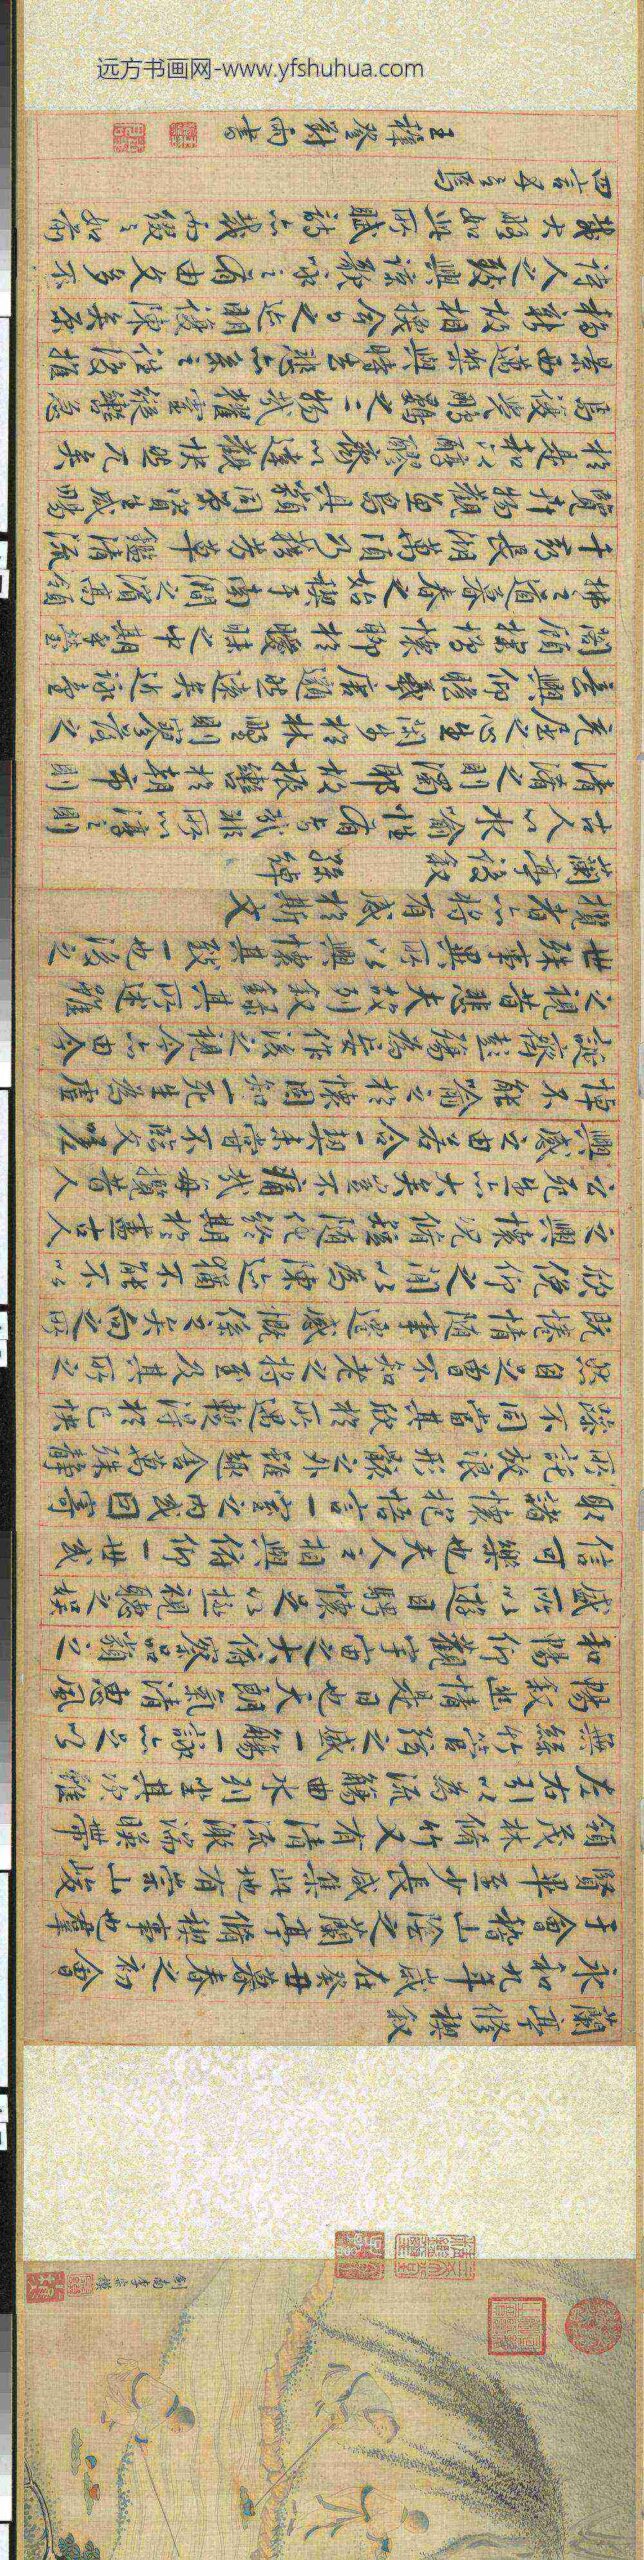 远方书画网-www.yfshuhua.com
蘭亭修禊敘
永和九年歲在癸丑暮春之初會
于會稽山陰之蘭亭脩禊事也羣
賢畢至少長咸集此地有崇山峻
領茂林脩竹又有清流激湍暎帶
左右引以為流觴曲水列坐其次雖
無絲竹管絃之盛一觴一詠亦足以
暢敘幽情是日也天朗氣清惠風
和暢仰觀宇宙之大俯察品類之
盛所以遊目騁懷足以極視聽之娛
信可樂也夫人之相與俯仰一世或
取諸懷抱悟言一室之內或因寄
所託放浪形骸之外雖趣舍萬殊靜
躁不同當其欣於所遇輒得於己快
然自足曾不知老之將至及其所之
既倦情隨事遷感慨係之矣向之所
欣俛仰之間以為陳迹猶不能不以
之興懷況脩短隨化終期於盡古人
云死生亦大矣豈不痛哉每攬昔人
興感之由若合一契未嘗不臨文嗟
悼不能喻之於懷固知一死生為虛
誕齊彭殤為妄作後之視今亦由今
之視昔悲夫故列敘錄其所述雖
世殊事異所以興懷其致一也後之
攬者亦將有感於斯文
蘭亭後敘 孫綽
古人以水喻性有旨哉非所以渟之則
清淆之則濁耶故振轡於朝市則
充屈之心生閒步於林野則寥落之
意興仰瞻羲唐邈然遠矣近詠臺
閣顧探增懷聊於曖昧之中期乎瑩
拂之道暮春之始禊于南澗之濱高領
千尋長湖萬頃乃藉芳草鑑清流
覽卉物觀魚鳥具類同榮資生咸暢
於是和以醇醪齊以達觀快然兀矣
焉復覺鵬鷃之二物哉耀靈縱轡急
景西邁樂與時去悲亦系之往復推
移新故相換今日之迹明復陳矣原
詩人之致興諒歌詠之有由文多不
載大略如此所賦詩亦裁而綴之如前
四言五言焉
王穉登對雨書